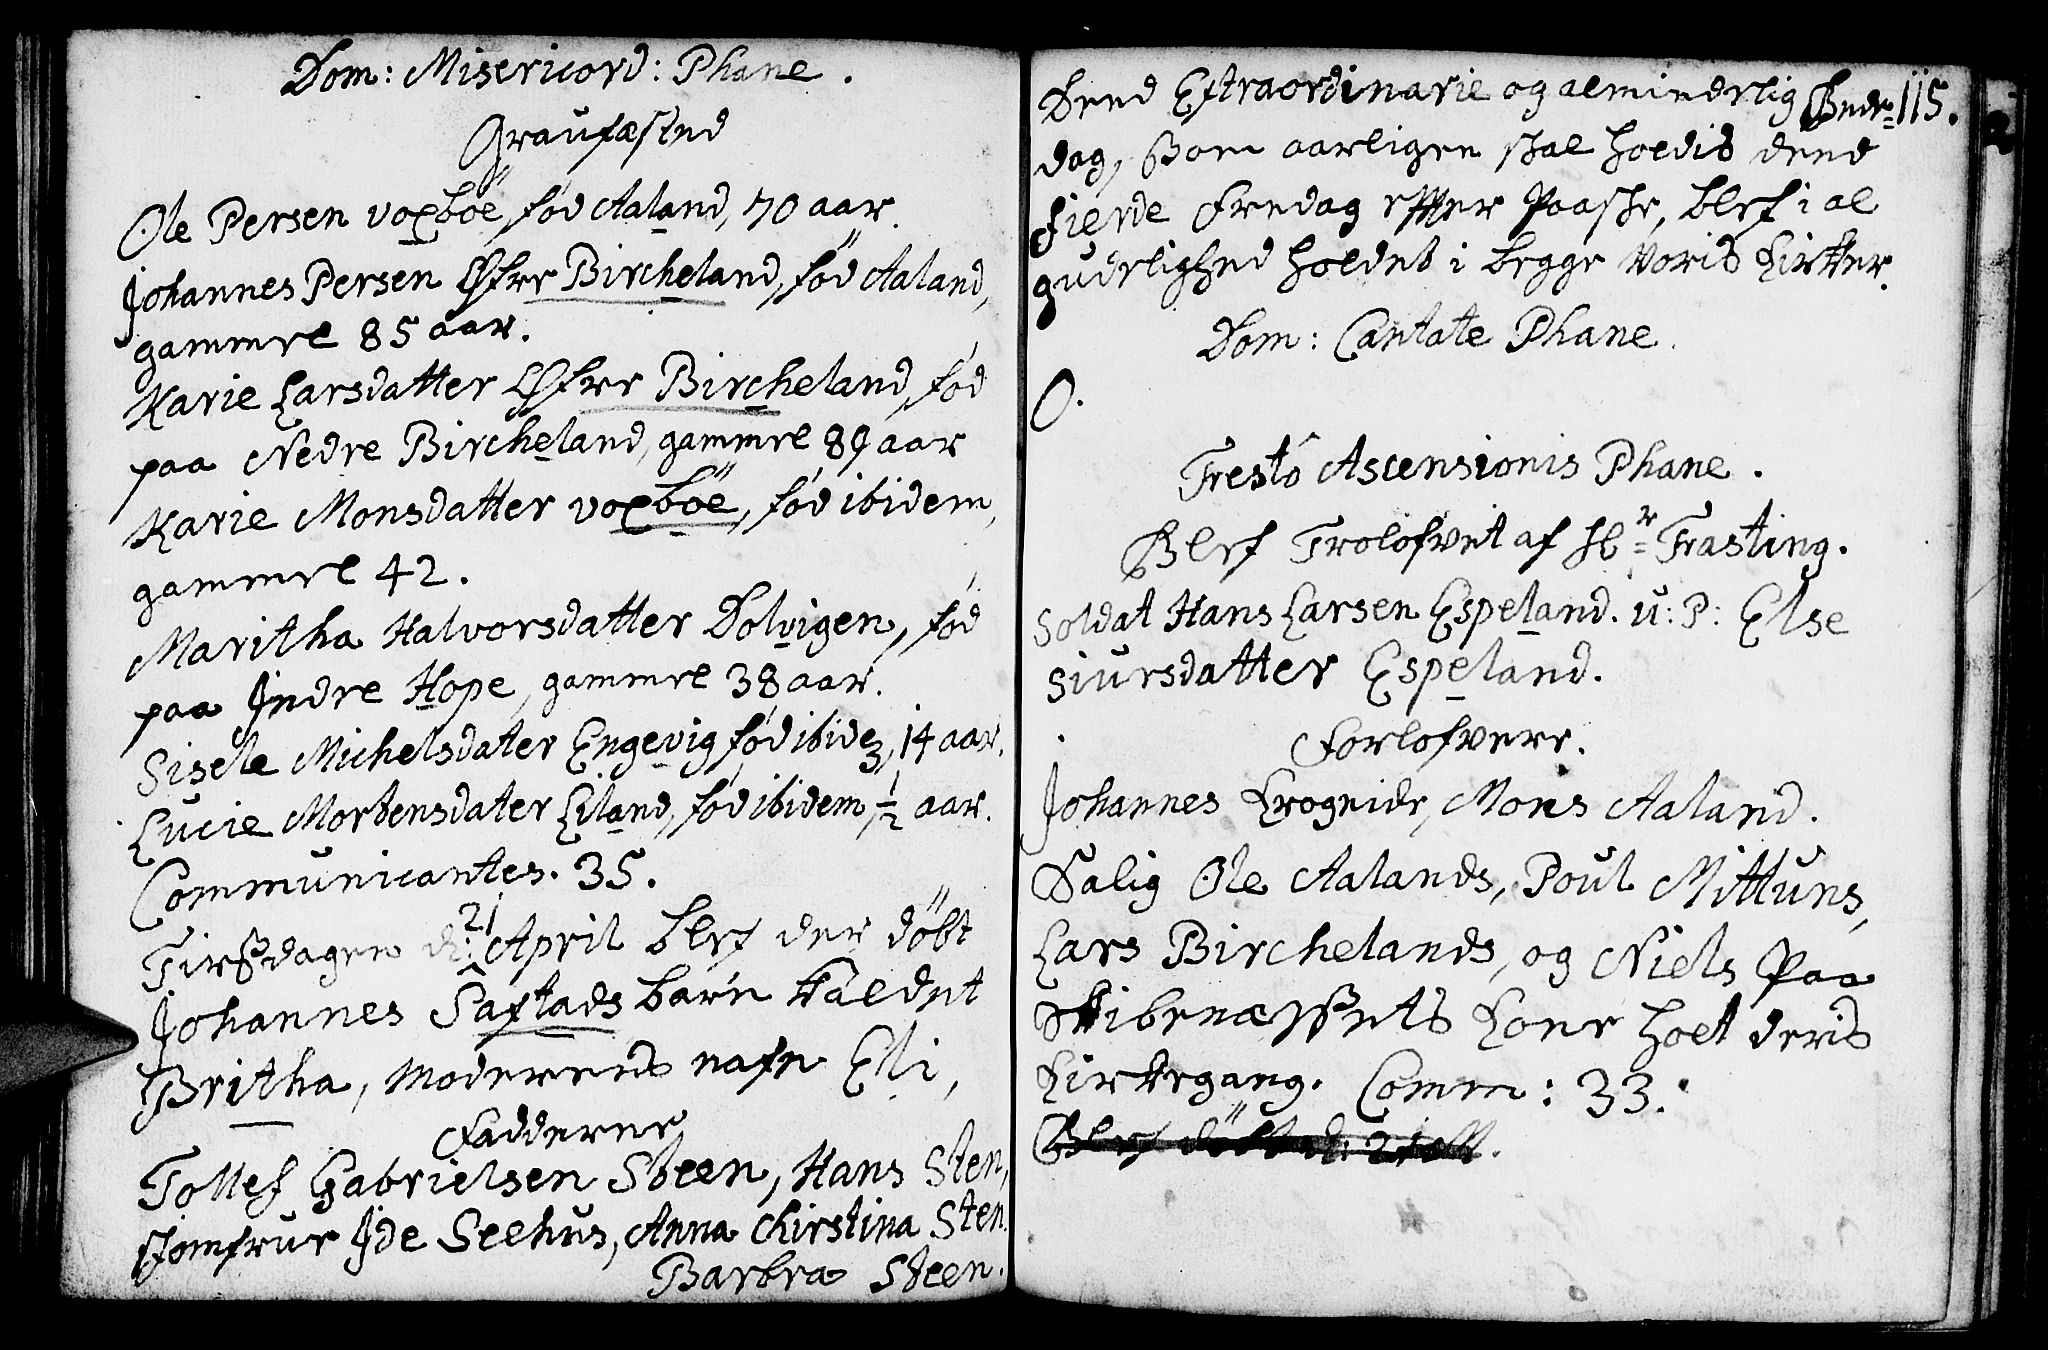 Dom: Misericord: Phane.
Graufæsted
Ole Persen voxböe, fød Aaland, 70 aar.
Johannes Persen Øfre Bircheland, fød Aaland,
gammel 85 aar.
Karie Larsdatter Øfre Bircheland, fød
paa Nedre Bircheland, gammel 89 aar
Karie Monsdatter voxböe, fød ibidem,
gammel 42.
Maritha Halvorsdatter Dolvigen, fød
paa Indre Hope, gammel 38 aar.
Sisele Michelsdater Engevig fød ibidē, 14 aar.
Lucie Mortensdater Liland, fød ibidem, ½ aar.
Communicantes. 35.
Tirsdagen d: 21 April blef der döbt
Johannes Saftads barn kaldet
Britha, moderens nafn Eli,
Fadderne
Tollef Gabrielsen Steen, Hans Sten,
Jomfrue Ide Seehus, Anna Chirstina Sten
Barbra Steen.
Dend Extraordinarie og almindelig Bede= 115.
dag, som aarligen skal holdis dend
fierde Fredag efter Paaske, blef i al
gudelighed holdet i begge voris Kirker.
Dom: Cantate Phane.
O.
Festo Ascensionis Phane.
Blef Trolofvet af Hr= Frasting.
Soldat Hans Larsen Espeland. u: P: Else
Siursdatter Espeland.
Forlofvere.
Johannes Krogeide, Mons Aaland.
Salig Ole Aalands, Poul Mittuns,
Lars Birchelands, og Niels Paa
Skibenæssets Kone holt deris
Kirkegang. Comm: 33.
Blef döbt d: 21